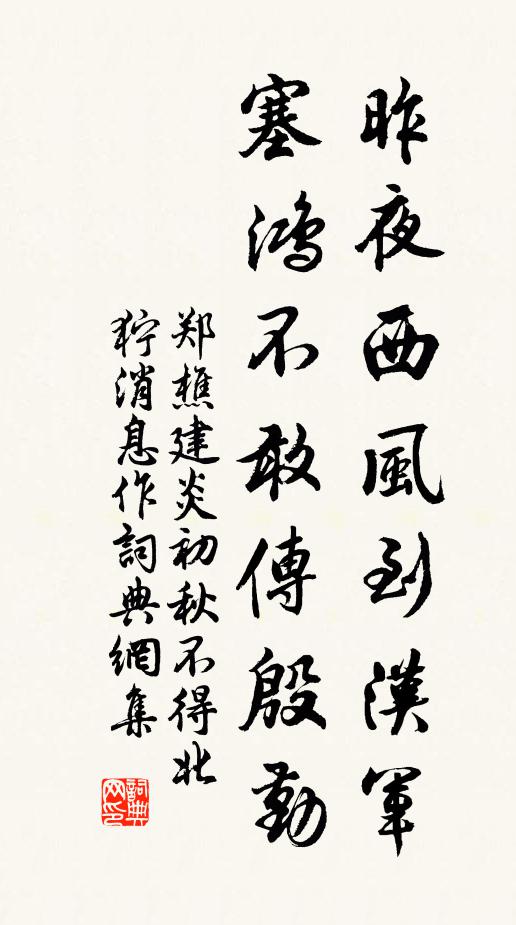 昨夜西風到漢軍
塞鴻不敢傳殷勤
郑樵建炎初秋不得北
狩消息作詞典網集
詞典网印